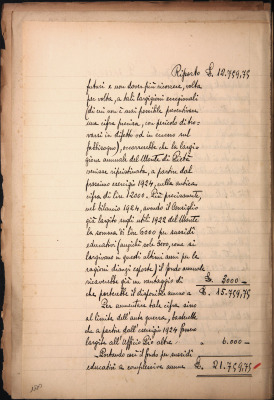 Riporto £. 12.759,75
futuri e non dover più ricorrere, volta
per volta, a tali largizioni eccezionali
(di cui non è mai possibile prevedere
una cifra precisa, con pericolo di tro-
varsi in difetto od in eccesso sul
fabbisogno), occorrerebbe che la largi-
zione annuale del Monte di Pietà
venisse ripristinata, a partire dal
prossimo esercizio 1924, nella antica
cifra di lire 12000. Più precisamente,
nel bilancio 1924, avendo il Consiglio
già largito sugli utili 1922 del Monte
la somma di lire 6000 per sussidi
educativi (anziché sole 3000, come si
largivano in questi ultimi anni per le
ragioni dianzi esposte) il fondo annuale
ricaverebbe già un vantaggio di £. 3000 —
che porterebbe il disponibile annuo a £. 15.759,75
Per aumentare tale cifra sino
al limite dell'ante guerra, basterebbe
che a partire dall'esercizio 1924 fossero
largite all'Ufficio Pio altre " 6.000 —
Portando così il fondo per sussidi
educativi a complessive annue £. 21.759,75